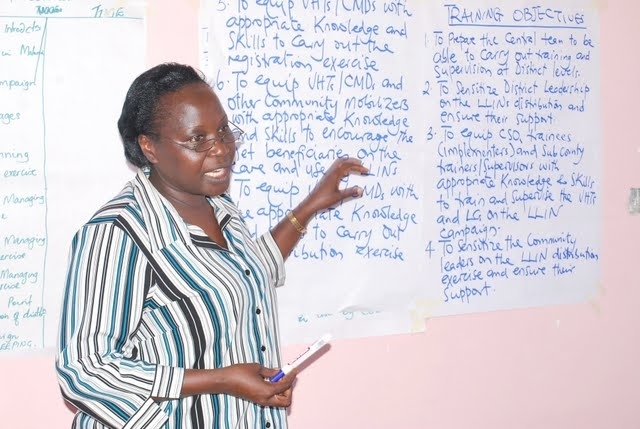 Time
Introducti
Mobni
ampaign
ages
nning
exercise
Managing
e
Managing
ercise
Managing
ercise
Point
n of distr
ign
EEPING.
5. To equip VHTs/CMDs with
appropriate Knowledge and
Skills to carry out the
registration exercise
6. To equip VHTs/CMDs and
other Community Mobilizers
with appropriate Knowledge
and Skills to encourage the
net beneficiaries on the
care and use LLINs
To equip MDs with
appropriate Knowledge
to carry out
bution exercise
TRAINING OBJECTIVES
1. To Prepare the Central team to be
able to carry out training and
Supervision at District levels.
2. To Sensitize District Leadership
on the LLINs distribution and
ensure their support.
3. To equip CSO, trainees
(implementers) and Subcounty
trainers/Supervisors with
appropriate Knowledge & Skills
to train and Supervise the VHTs
and LG on the LLIN
campaign.
4. To Sensitize the Community
leaders on the LLIN distribution
exercise and ensure their
Support.